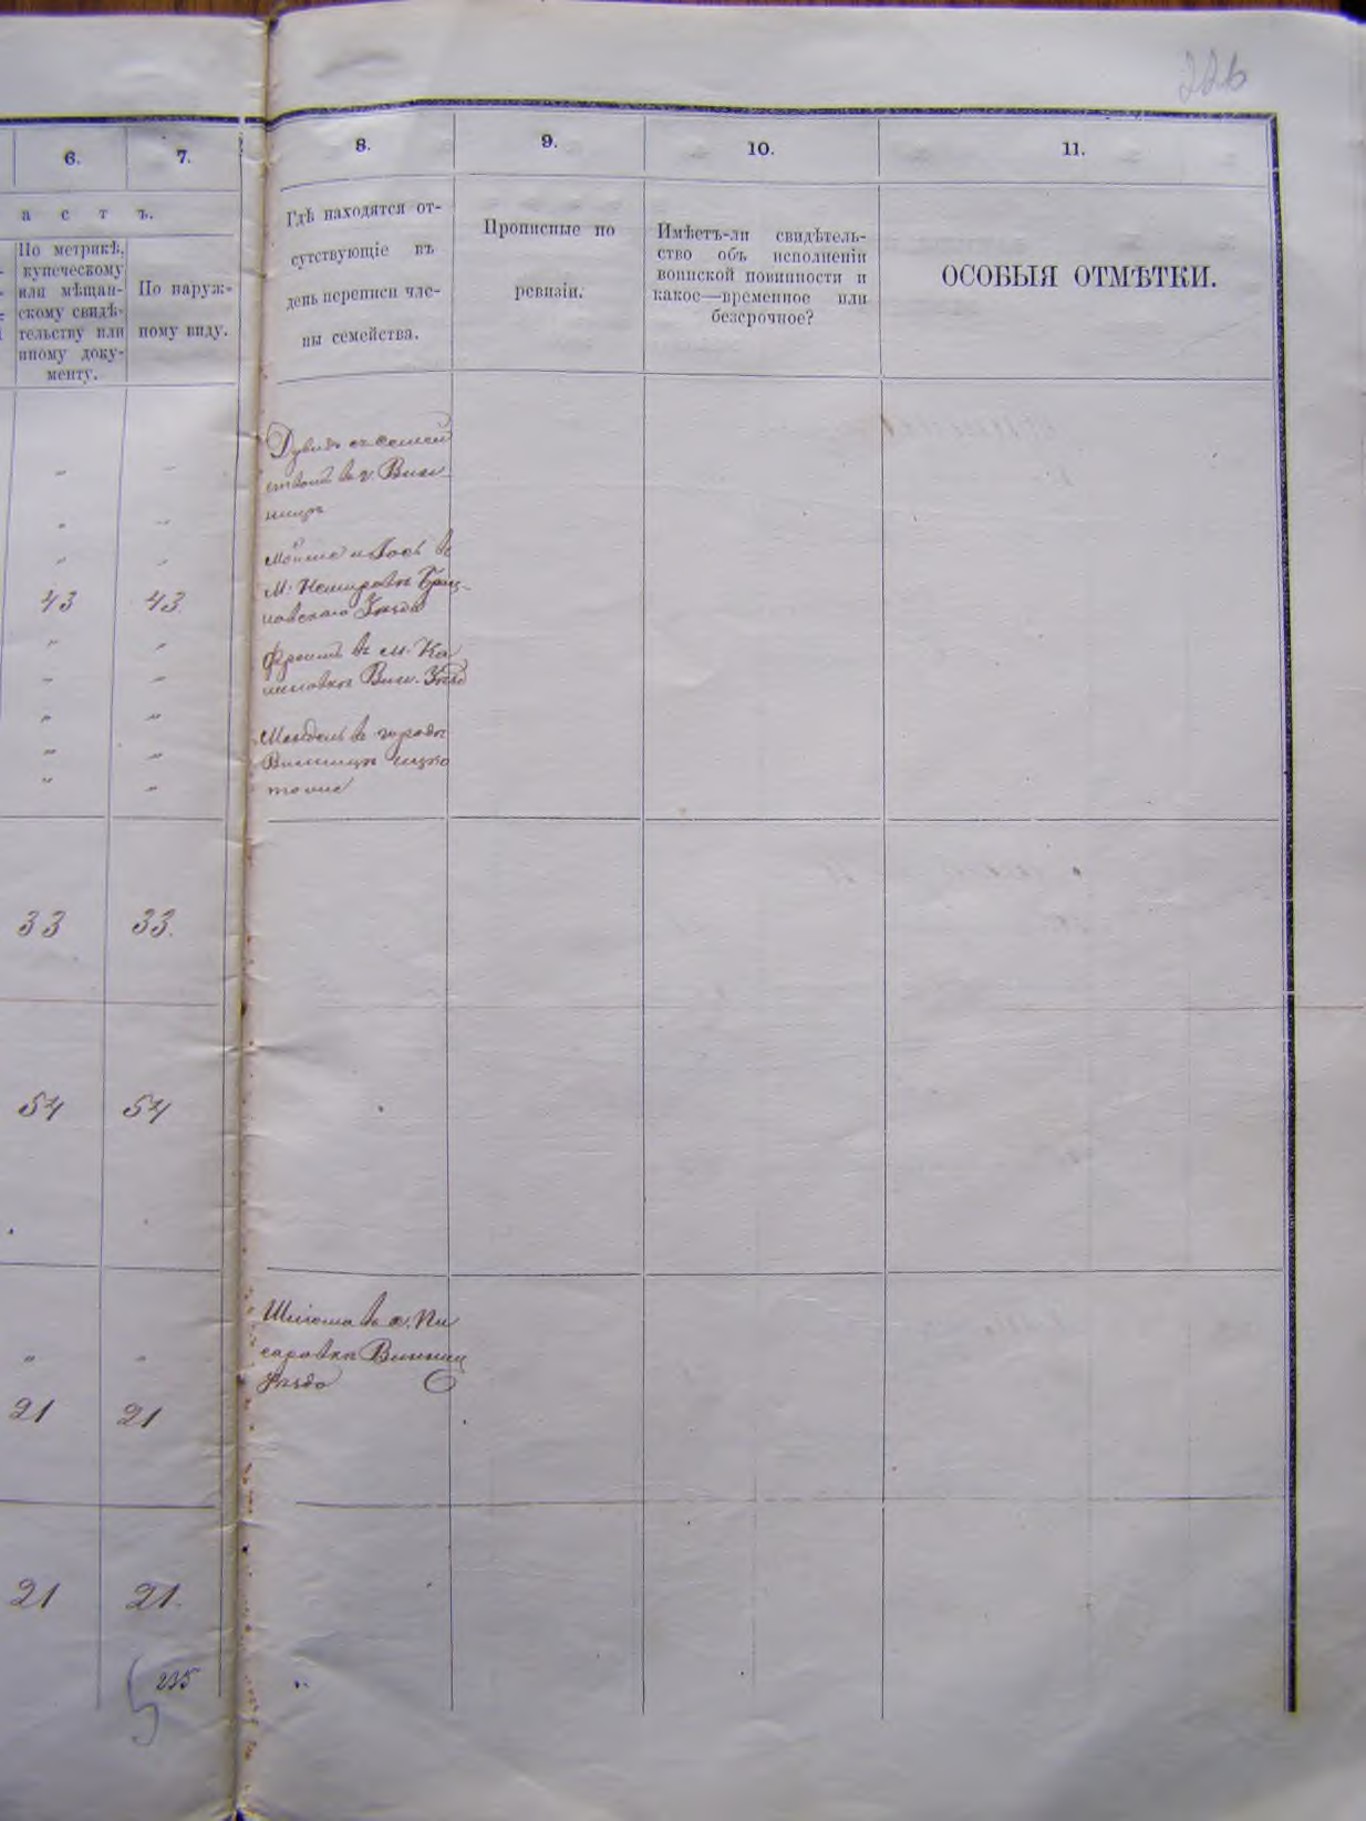 226
6.
7.
8.
9.
10.
11.
а с т ъ.
По метрикѣ,
купеческому
или мѣщан-
скому свидѣ-
тельству или
иному доку-
менту.
По наруж-
ному виду.
Гдѣ находятся от-
сутствующіе въ
день переписи чле-
ны семейства.
Прописные по
ревизіи.
Имѣетъ-ли свидѣтель-
ство объ исполненіи
воинской повинности и
какое—временное или
безсрочное?
ОСОБЫЯ ОТМѢТКИ.
Дувидъ съ семей
ствомъ въ г. Вин
ницѣ
" "
" "
" "
43 43.
" "
" "
" "
" "
" "
Мойше и Іось въ
М. Немировѣ Брац-
лавскаго Уѣзда
Фроимъ въ м. Ка
лин. Уѣзд
Мендель въ городѣ
Винницѣ
33 33.
54 54
Шлiома въ с. Пи
саровкѣ Винниц
Уѣзда
" "
21 21
21 21.
235
5